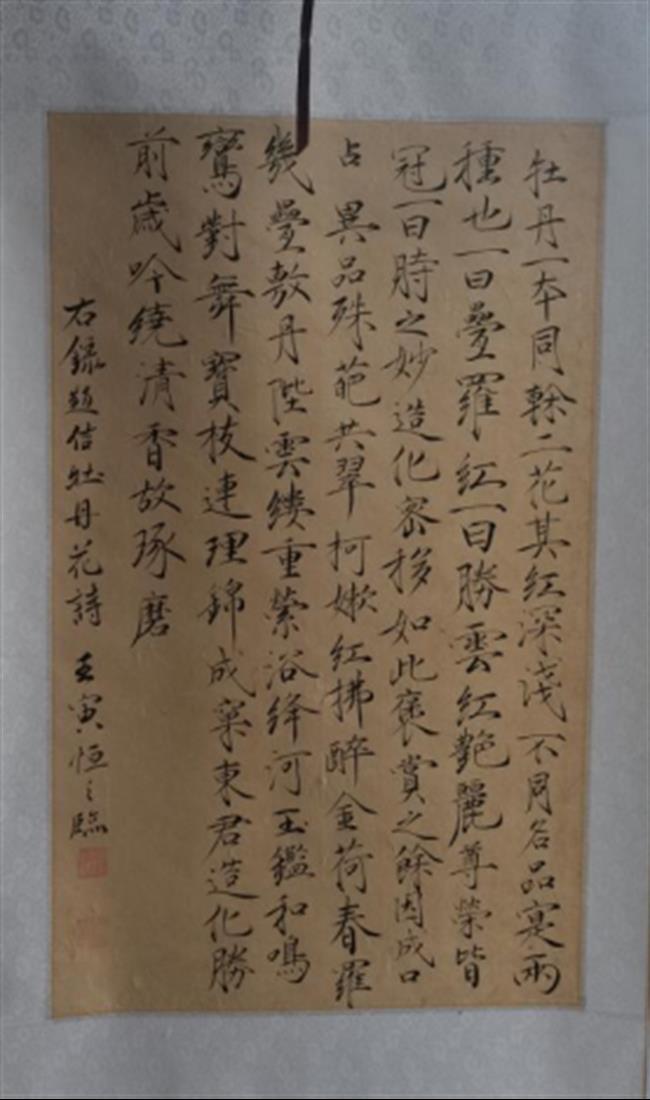 牡丹一本同榦二花其紅深淺不同名品寔兩
種也一曰疊羅紅一曰勝雲紅艷麗尊榮皆
冠一曰時之妙造化密移如此褒賞之餘因成口
占 異品殊葩共翠柯嫩紅拂醉金荷春羅
幾疊敷丹陛雲縷重縈浴絳河玉鑑和鳴
鸞對舞寶枝連理錦成窠東君造化勝
前歲吟繞清香故琢磨
右錄趙佶牡丹花詩 壬寅恒之臨